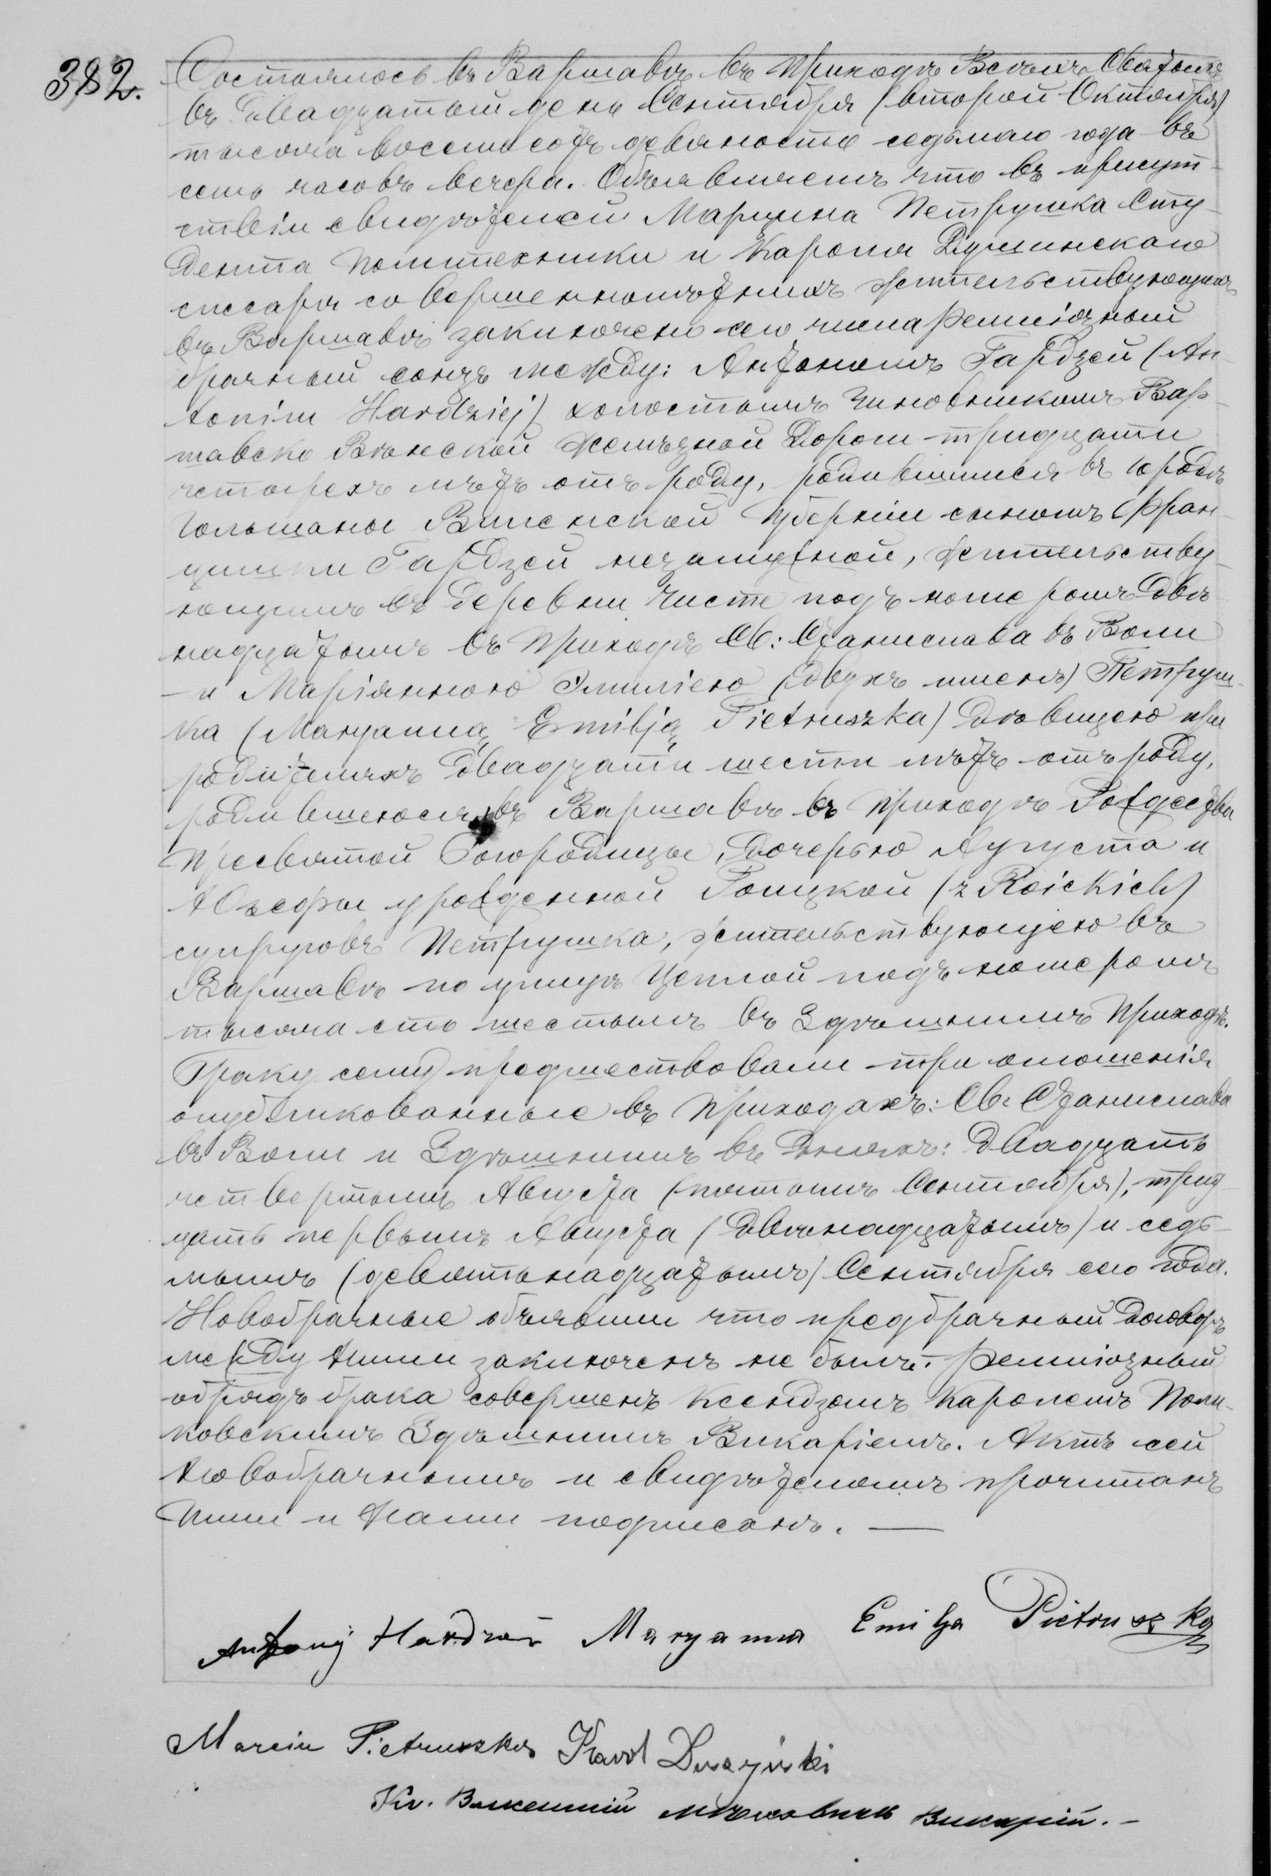 382.
Состоялось въ Варшавѣ въ приходѣ Всѣхъ Святыхъ
въ двадцатый день Сентября (второй Октября)
тысяча восемьсотъ девяносто седьмаго года въ
семь часовъ вечера. Объявляемъ что въ присут-
ствіи свидѣтелей Марцина Петрушка Сту-
дента политехники и Кароля Душинскаго
слесаря совершеннолѣтнихъ жительствующихъ
въ Варшавѣ заключенъ сего числа религіозный
брачный союзъ между: Антономъ Гардзей (An-
tonim Hardziej) холостымъ чиновникомъ Вар-
шавско Вѣнской Желѣзной Дороги тридцати
четырехъ лѣтъ отъ роду, родившимся въ городѣ
Гольшаны Виленской губерніи сыномъ Фран-
цишки Гардзей незамужной, жительству-
ющимъ въ деревни Чисте подъ номеромъ двѣ-
надцатымъ въ приходѣ Св: Станислава въ Воли
– и Маріанною Эмиліею (двухъ именъ) Петруш-
ка (Maryanną Emilją Pietruszka) дѣвицею при
родителяхъ двадцати шести лѣтъ отъ роду,
родившеюся въ Варшавѣ въ приходѣ Рождества
Пресвятой Богородицы, дочерью Августа и
Юзефы урожденной Роицкой (z Roickich)
супруговъ Петрушка, жительствующею въ
Варшавѣ по улицѣ Цеплой подъ номеромъ
тысяча сто шестымъ въ здѣшнимъ приходѣ.
Браку сему предшествовали три оглашенія
опубликованные въ приходахъ: Св. Станислава
въ Воли и Здѣшнимъ въ дняхъ: двадцать
четвертымъ Августа (пятымъ Сентября), трид-
цать первымъ Августа (двѣнадцатымъ) и седь-
мымъ (девятьнадцатымъ) Сентября сего года.
Новобрачные объявили что предбрачный договоръ
между ними заключенъ не былъ. Религіозный
обрядъ брака совершенъ ксендзомъ Каролемъ
ковскимъ Здѣшнимъ Викаріемъ. Актъ сей
Новобрачнымъ и свидѣтелямъ прочитанъ
Ними и Нами подписанъ. —
Antony Hardziej Maryanna Emilja Pietruszka
Marcin Pietruszka Karol Duszyński
Кс. Викарій. –